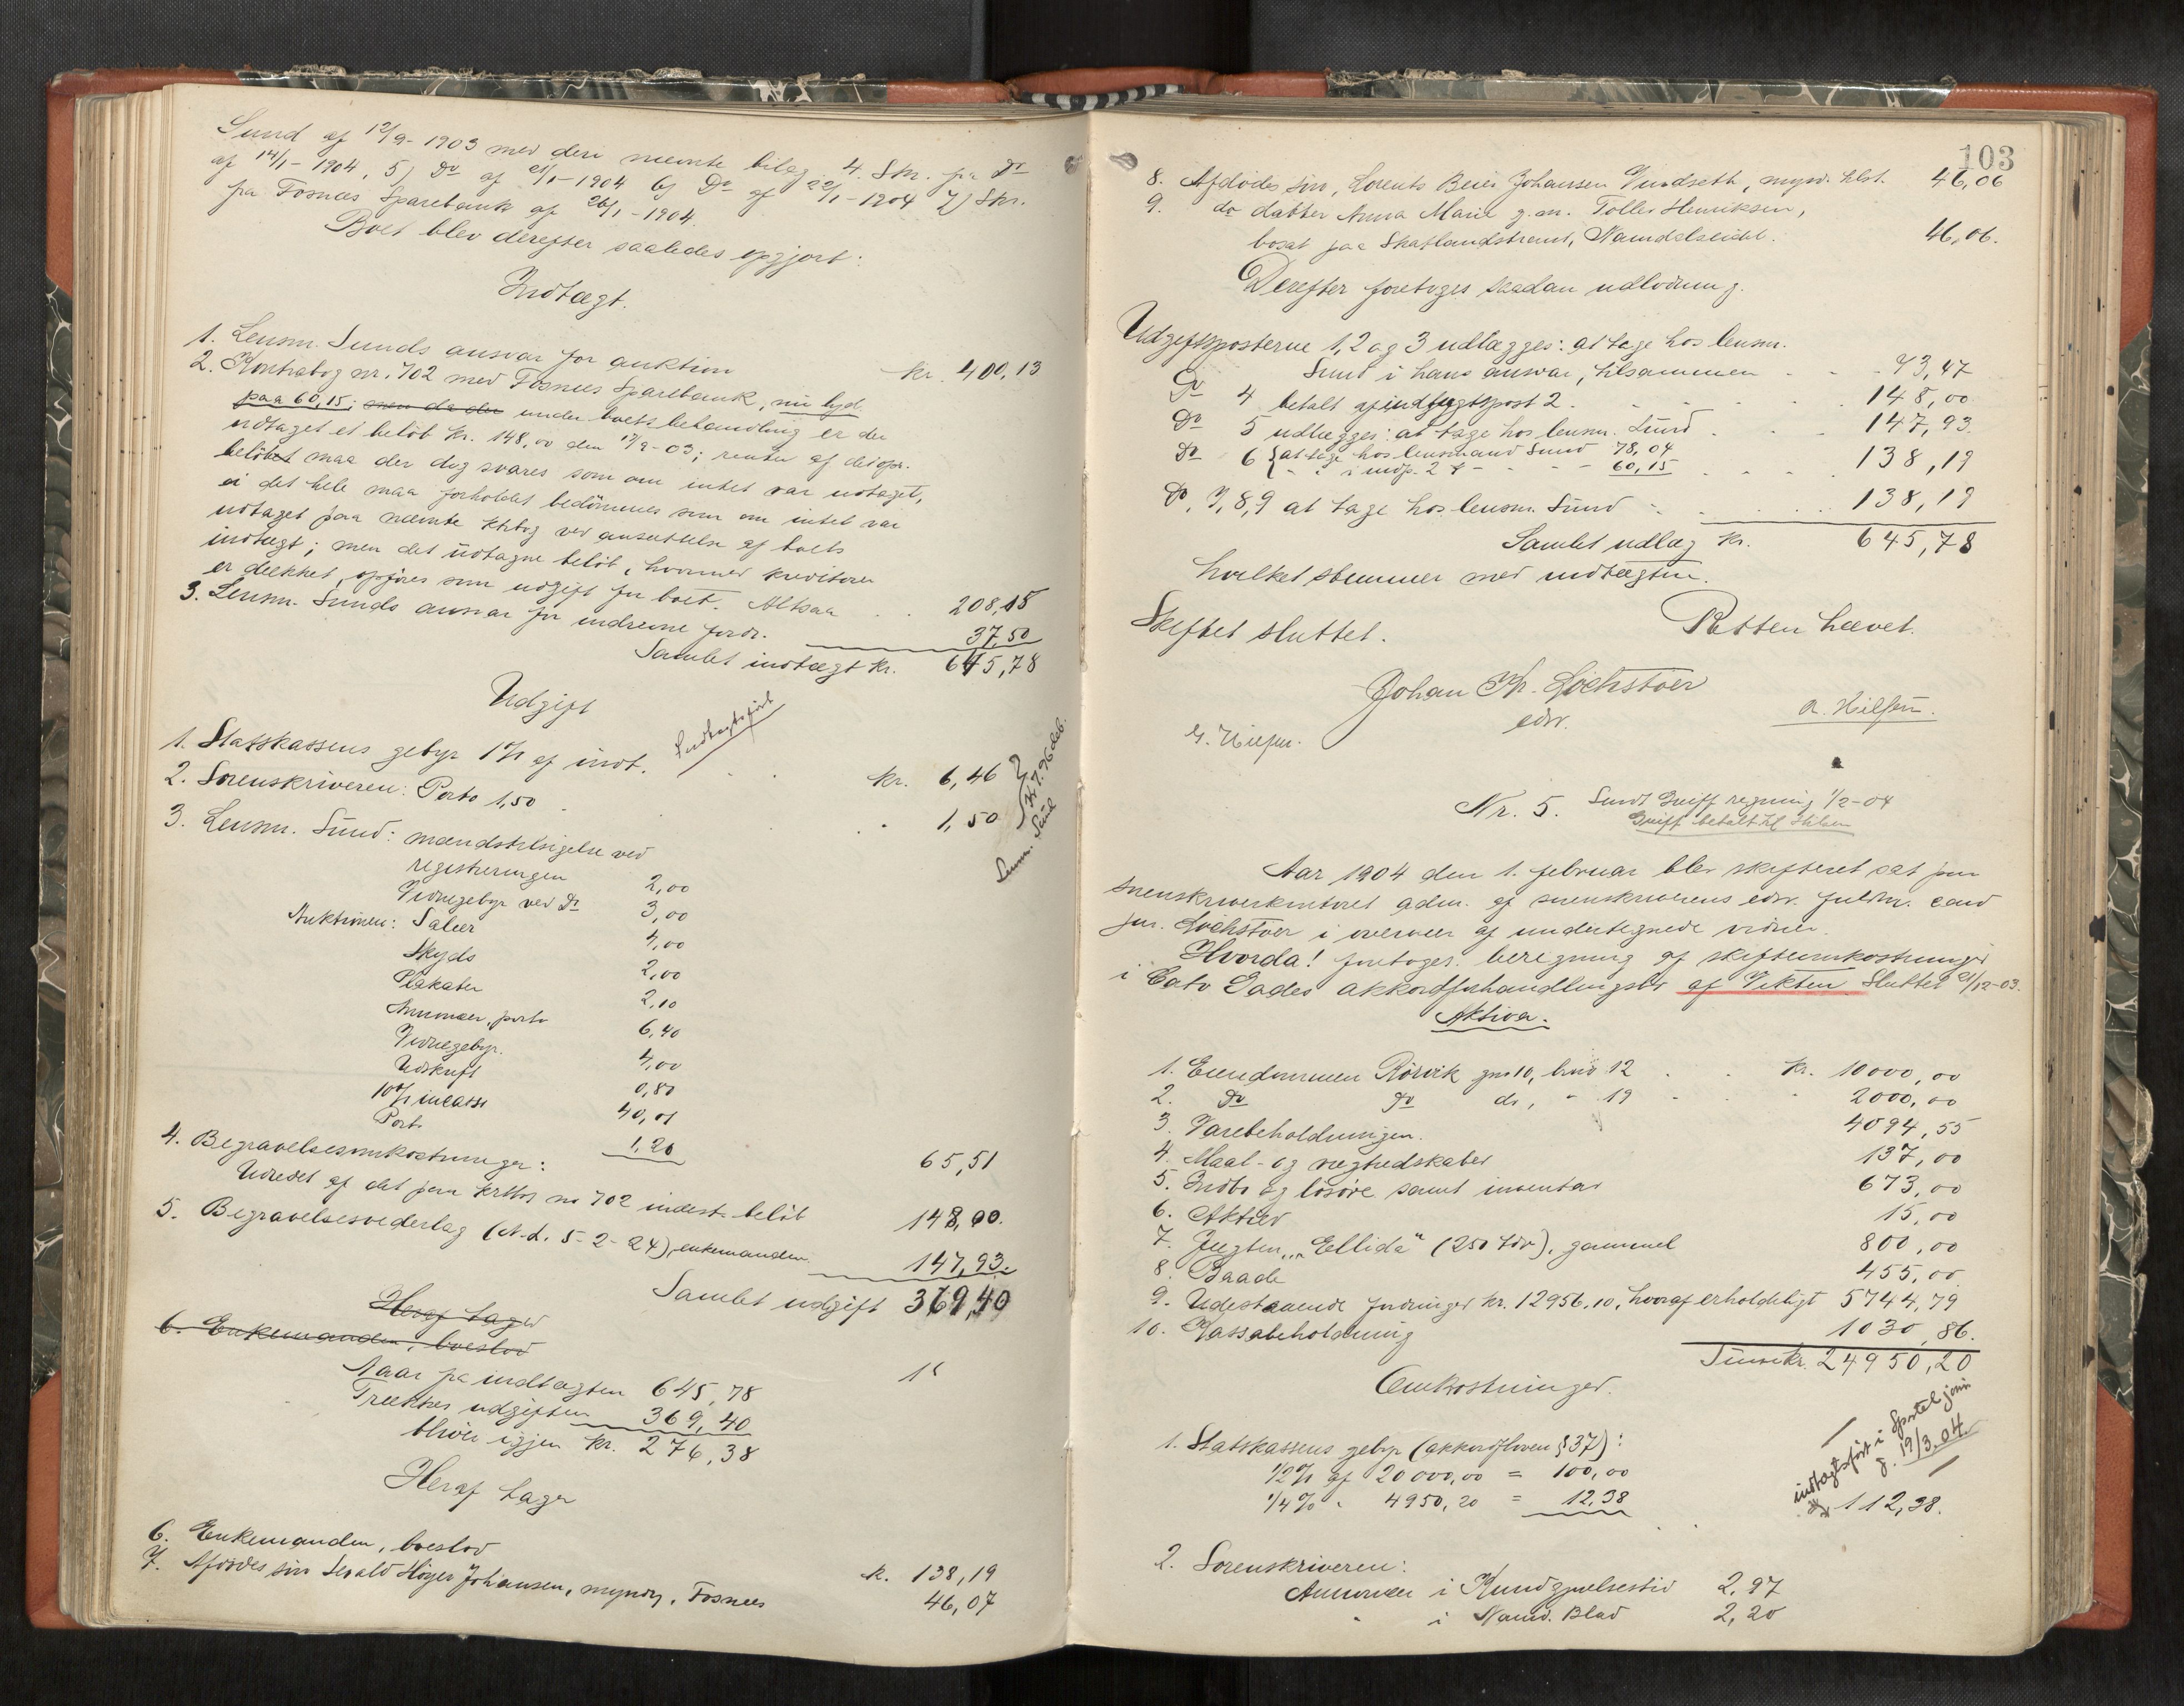 Sund af 12/9-1903 med deri nævnte bilag 4. Skr. fra Do
af 14/1-1904, 5) Do af 21/1-1904 6) Do af 22/1-1904 7) Skr.
fra Fosnes Sparebank af 26/1-1904.
Boet blev derefter saaledes opgjort:
Indtægt.
1. Lensm. Sunds ansvar for auktion kr. 400,13
2. Kontrabog nr. 702 med Fosnes Sparebank, nu lyd.
paa 60,15; men da der under boets behandling er der
udtaget et beløb kr. 148,00 den 12/9-03; renter af
beløbet maa der dog svares som om intet var udtaget,
i det hele maa forholdet bedømmes som om intet var
udtaget paa nævnte ktrbog ved ansættelse af boets
indtægt; men det udtagne beløb, hvormed kreditorer
er dækket, opføres som udgift for boet. Altsaa 208,15
3. Lensm. Sunds ansvar for inddrevne fordr. 37,50
Samlet indtægt kr. 645,78
Udgift
Indtægtsført
1. Statskassens gebyr 1% af indt. kr. 6,46
2. Sorenskriveren: Porto 1,50 1,50
47.96 deb.
Lensm. Sund
3. Lensm. Sund: mændstilsigelse ved
registreringen 2,00
Vidnegebyr ved Do 3,00
Auktionen: Salær 4,00
Skyds 2,00
Plakater 2,10
Annoncer, porto 6,40
Vidnegebyr. 4,00
Udskrift 0,80
10% incasso 40,01
Porto 1,20
65,51
4. Begravelsesomkostninger:
Udredet af det paa ktrbog no 702 indest. beløb 148,00.
5. Begravelsesvederlag (N. L. 5-2-24), enkemanden 147,93.
Samlet udgift 369,40
Heraf tager
6. Enkemanden, boeslod
Naar fra indtægten 645,78
Trækkes udgiften 369,40
bliver igjen kr. 276,38
Heraf tager
6. Enkemanden, boeslod k. 138,19
7. Afdødes søn Sevald Høyer Johansen, myndig, Fosnes 46,07
103
8. Afdødes søn, Lorents Beier Johansen Vindseth, mynd. tilst. 46,06
9. do datter Anna Marie g. m. Tolles Henriksen,
bosat paa Skatlandstrand, Namdalseidet. 46,06.
Derefter foretoges saadan udlodning.
Udgiftsposterne 1, 2 og 3 udlægges: at tage hos lensm.
Sund i hans ansvar, tilsammen 73,47
Do 4 betalt af indtægtspost 2. 148,00
Do 5 udlægges: at tage hos lensm. Sund 147,93
Do 6 { at tage hos lensmand Sund 78,04
" " i indp. 2 60,15 138,19
Do 7, 8, 9 at tage hos lensm. Sund 138,19
Samlet udlæg kr. 645,78
hvilket stemmer med indtægten.
Skiftet sluttet. Retten hævet.
Johan Kr. Lochstøer
edsv.
A. Nilssen.
Nr. 5. Sendt Greiff regning 1/2-04
Greiff betalt
Aar 1904 den 1. februar blev skifteret sat paa
sorenskriverkontoret adm. af sorenskriverens edsv. fuldm. cand
jur. Lochstøer i overvær af undertegnede vidner.
Hvorda! foretoges beregning af skifteomkostninger
i Cato Lades akkordforhandlingsbo af Vikten Sluttet 21/12-03.
Aktiva.
1. Eiendommen Rørvik gno 10, bno 12 kr. 10000,00
2. Do Do do, " 19 2000,00
3. Varebeholdningen. 4094,55
4. Maal- og vegtredskaber 137,00
5. Indbo og løsøre samt inventar 673,00
6. Aktier 15,00
7. Jægten "Ellida" (250 tdr), gammel 800,00
8. Baade 455,00
9. Udestaaende fordringer kr. 12956,10, hvoraf erholdeligt 5744,79
10. Kassabeholdning 1030,86.
Summa kr. 24950,20
Omkostninger.
1. Statskassens gebyr (akkordloven § 37):
1/2% af 20000,00 = 100,00
1/4% " 4950,20 = 12,38
112,38.
indtægtsført i Sportel jour
d. 19/3.04.
2. Sorenskriveren:
Annoncer i Kundgjørelsestid 2,97
" i Namd. Blad 2,20